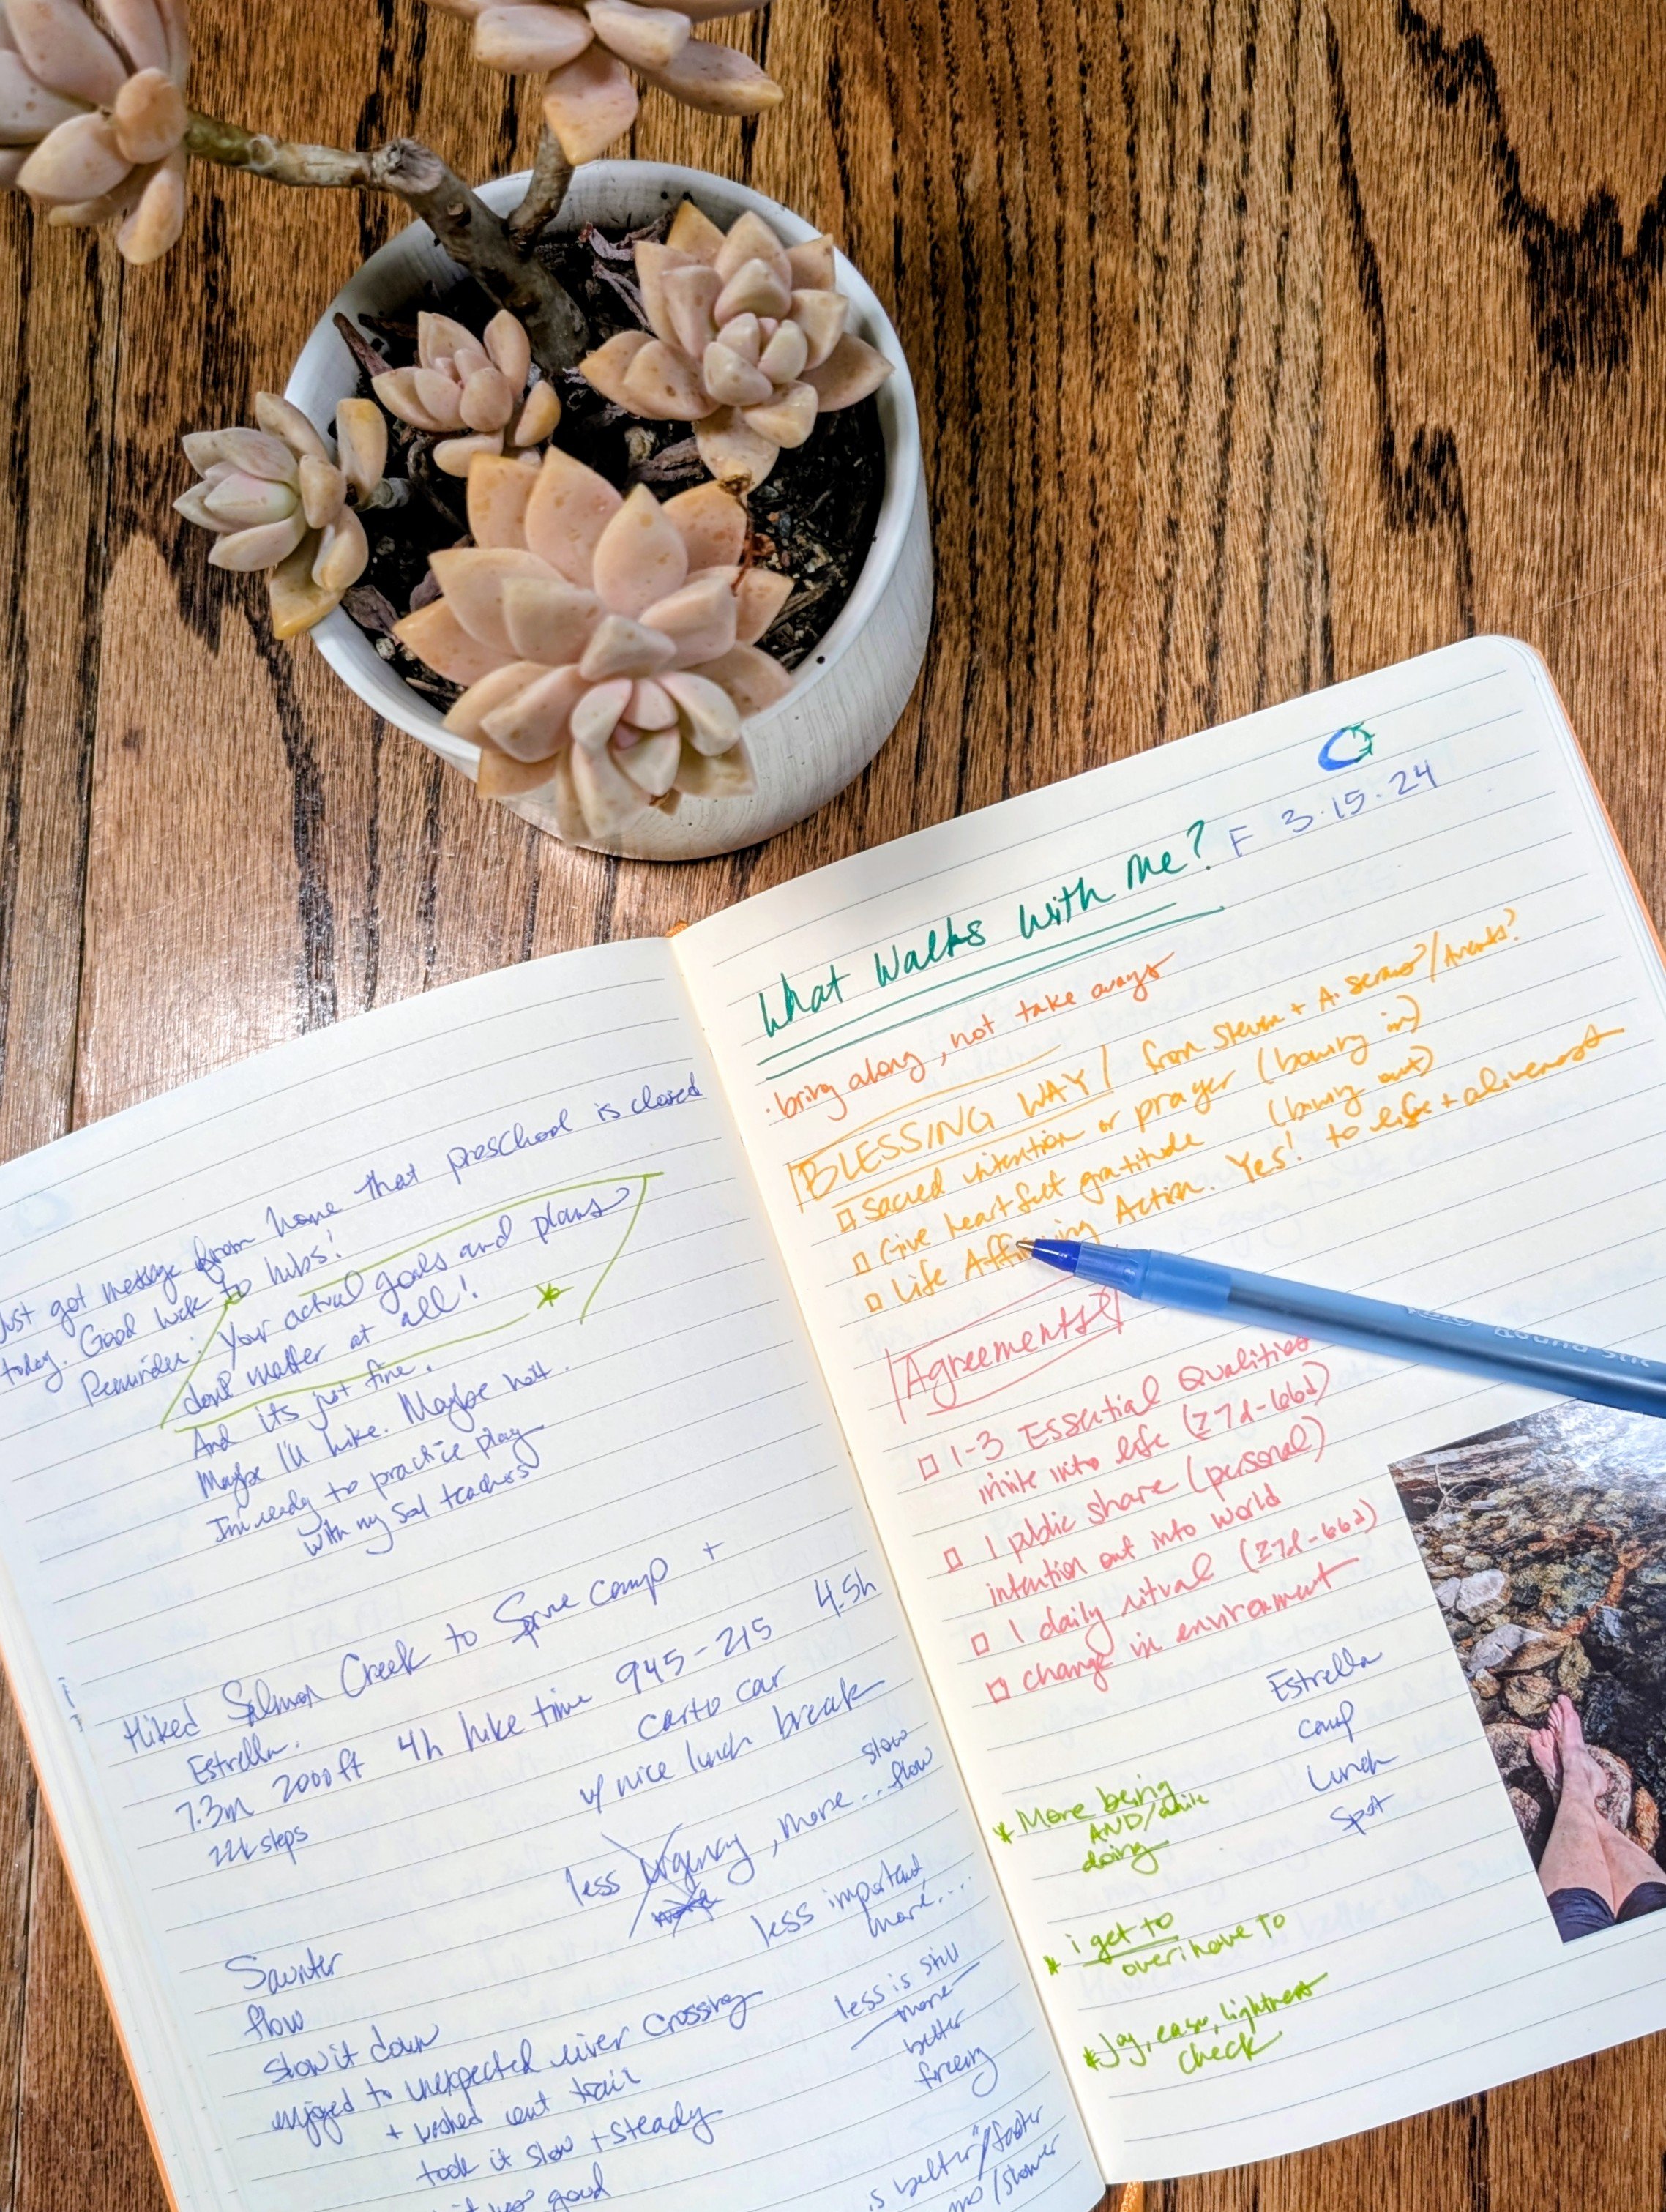 Just got message from home that preschool is closed
today. Good luck to hubs!
Reminder: Your actual goals and plans
don't matter at all!
And its just fine.
Maybe I'll hike. Maybe not.
Im ready to practice play
with my teachers
Hiked Salmon Creek to Spruce camp +
Estrella.
7.3m 2000ft 4h hike time 945-215 4.5h
car to car
22k steps
w/ nice lunch break
less urgency, more... slow
flow
less important,
more....
Saunter
flow
slow it down
less is still
more
better
freeing
enjoyed the unexpected river crossing
+ washed out trail
took it slow + steady
it was good
is better"/faster
/slower
What Walks With Me? F 3.15.24
· bring along, not take aways
BLESSING WAY / from Steven + A.
□ Sacred intention or prayer (bowing in)
□ Give heartfelt gratitude (bowing out)
□ Life Affirming Action. Yes! to life + aliveness
Agreements
□ 1-3 Essential Qualities
invite into life (≥7d-66d)
□ 1 public share (personal)
intention out into world
□ 1 daily ritual (≥7d-66d)
□ change in environment
Estrella
camp
Lunch
Spot
* More being
AND/while
doing
* i get to
over i have to
* Joy, ease, lightness
check